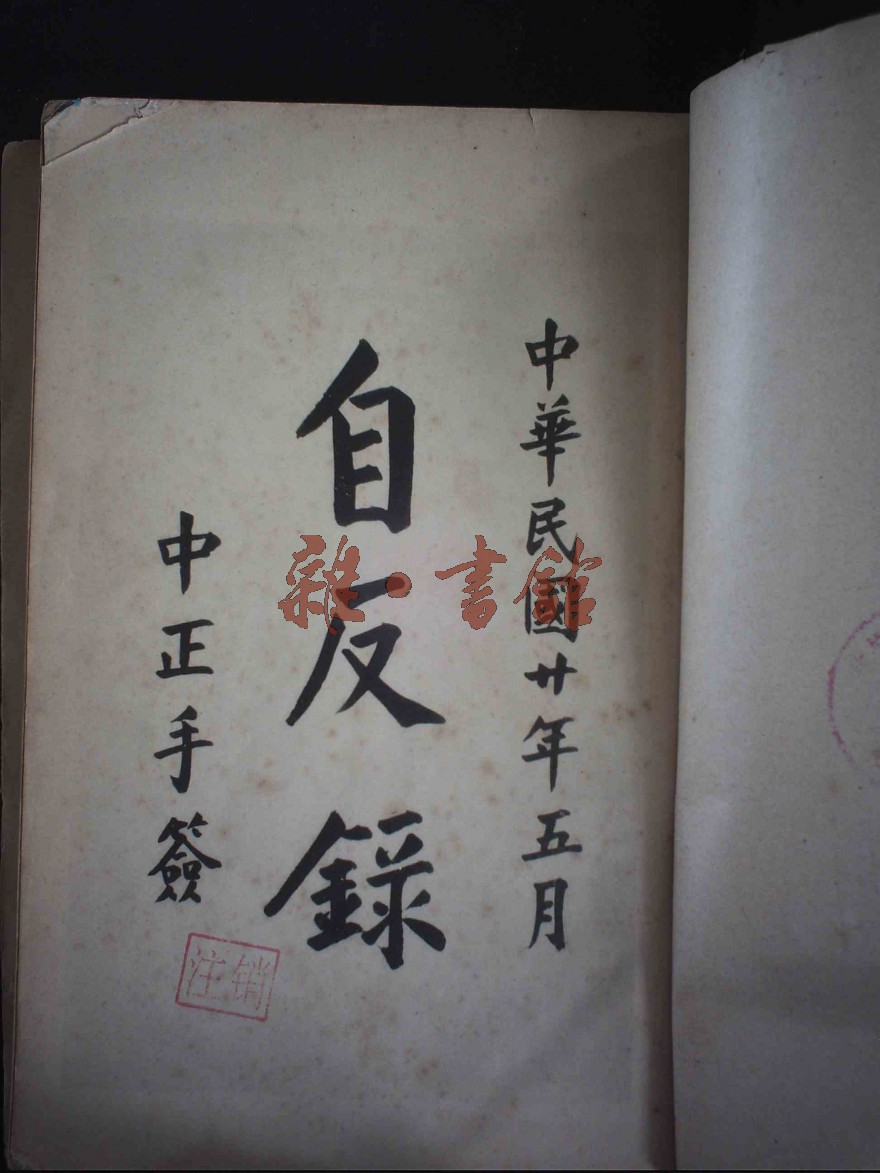 中華民國廿年五月
自反録
中正手簽
雜·書館
注销